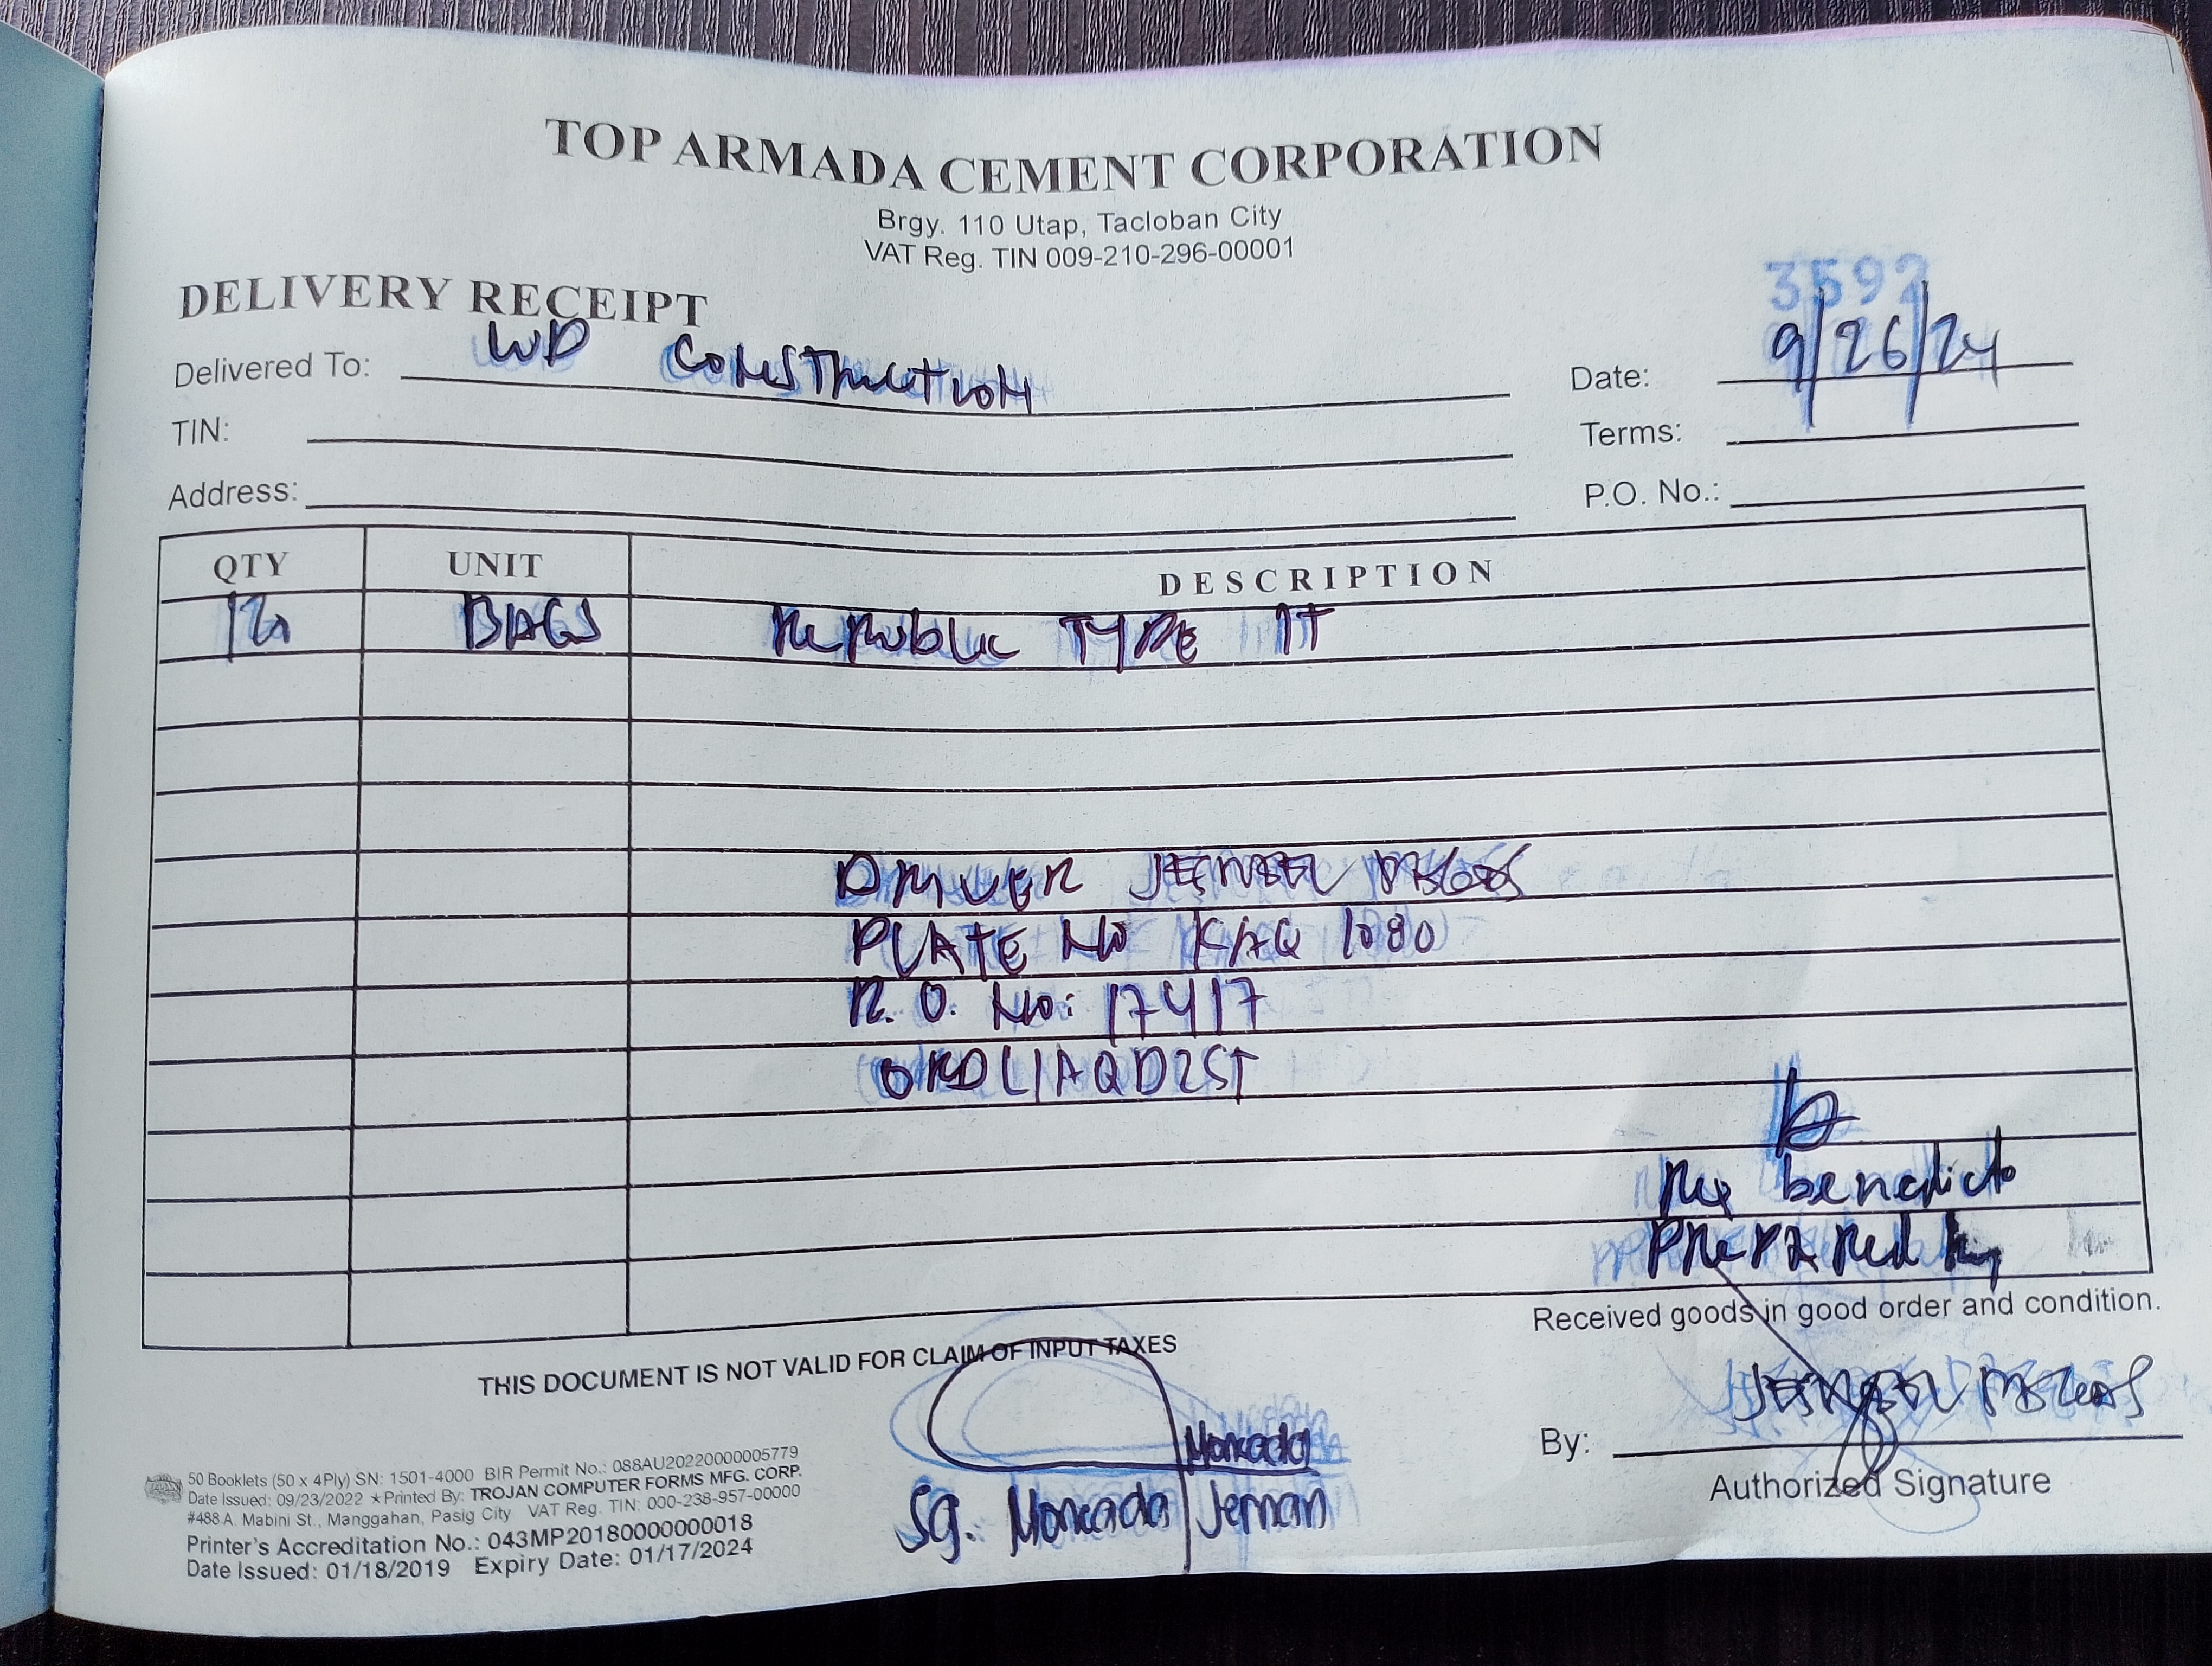 TOP ARMADA CEMENT CORPORATION
Brgy. 110 Utap, Tacloban City
VAT Reg. TIN 009-210-296-00001
DELIVERY RECEIPT
3592
Delivered To: WD CONSTRUCTION
Date: 9/26/24
TIN:
Terms:
Address:
P.O. No.:
QTY UNIT DESCRIPTION
BAGS Republic TYPE 1T
DRIVER
PLATE NO KAQ 1080
R.O. No: 17417
benedicto
Prepared by
Received goods in good order and condition.
THIS DOCUMENT IS NOT VALID FOR CLAIM OF INPUT TAXES
By:
Authorized Signature
Moncada
Sg. Moncada Jernan
50 Booklets (50 x 4Ply) SN: 1501-4000 BIR Permit No.: 088AU20220000005779
Date Issued: 09/23/2022 ★Printed By: TROJAN COMPUTER FORMS MFG. CORP.
#488 A. Mabini St., Manggahan, Pasig City VAT Reg. TIN: 000-238-957-00000
Printer's Accreditation No.: 043MP20180000000018
Date Issued: 01/18/2019 Expiry Date: 01/17/2024